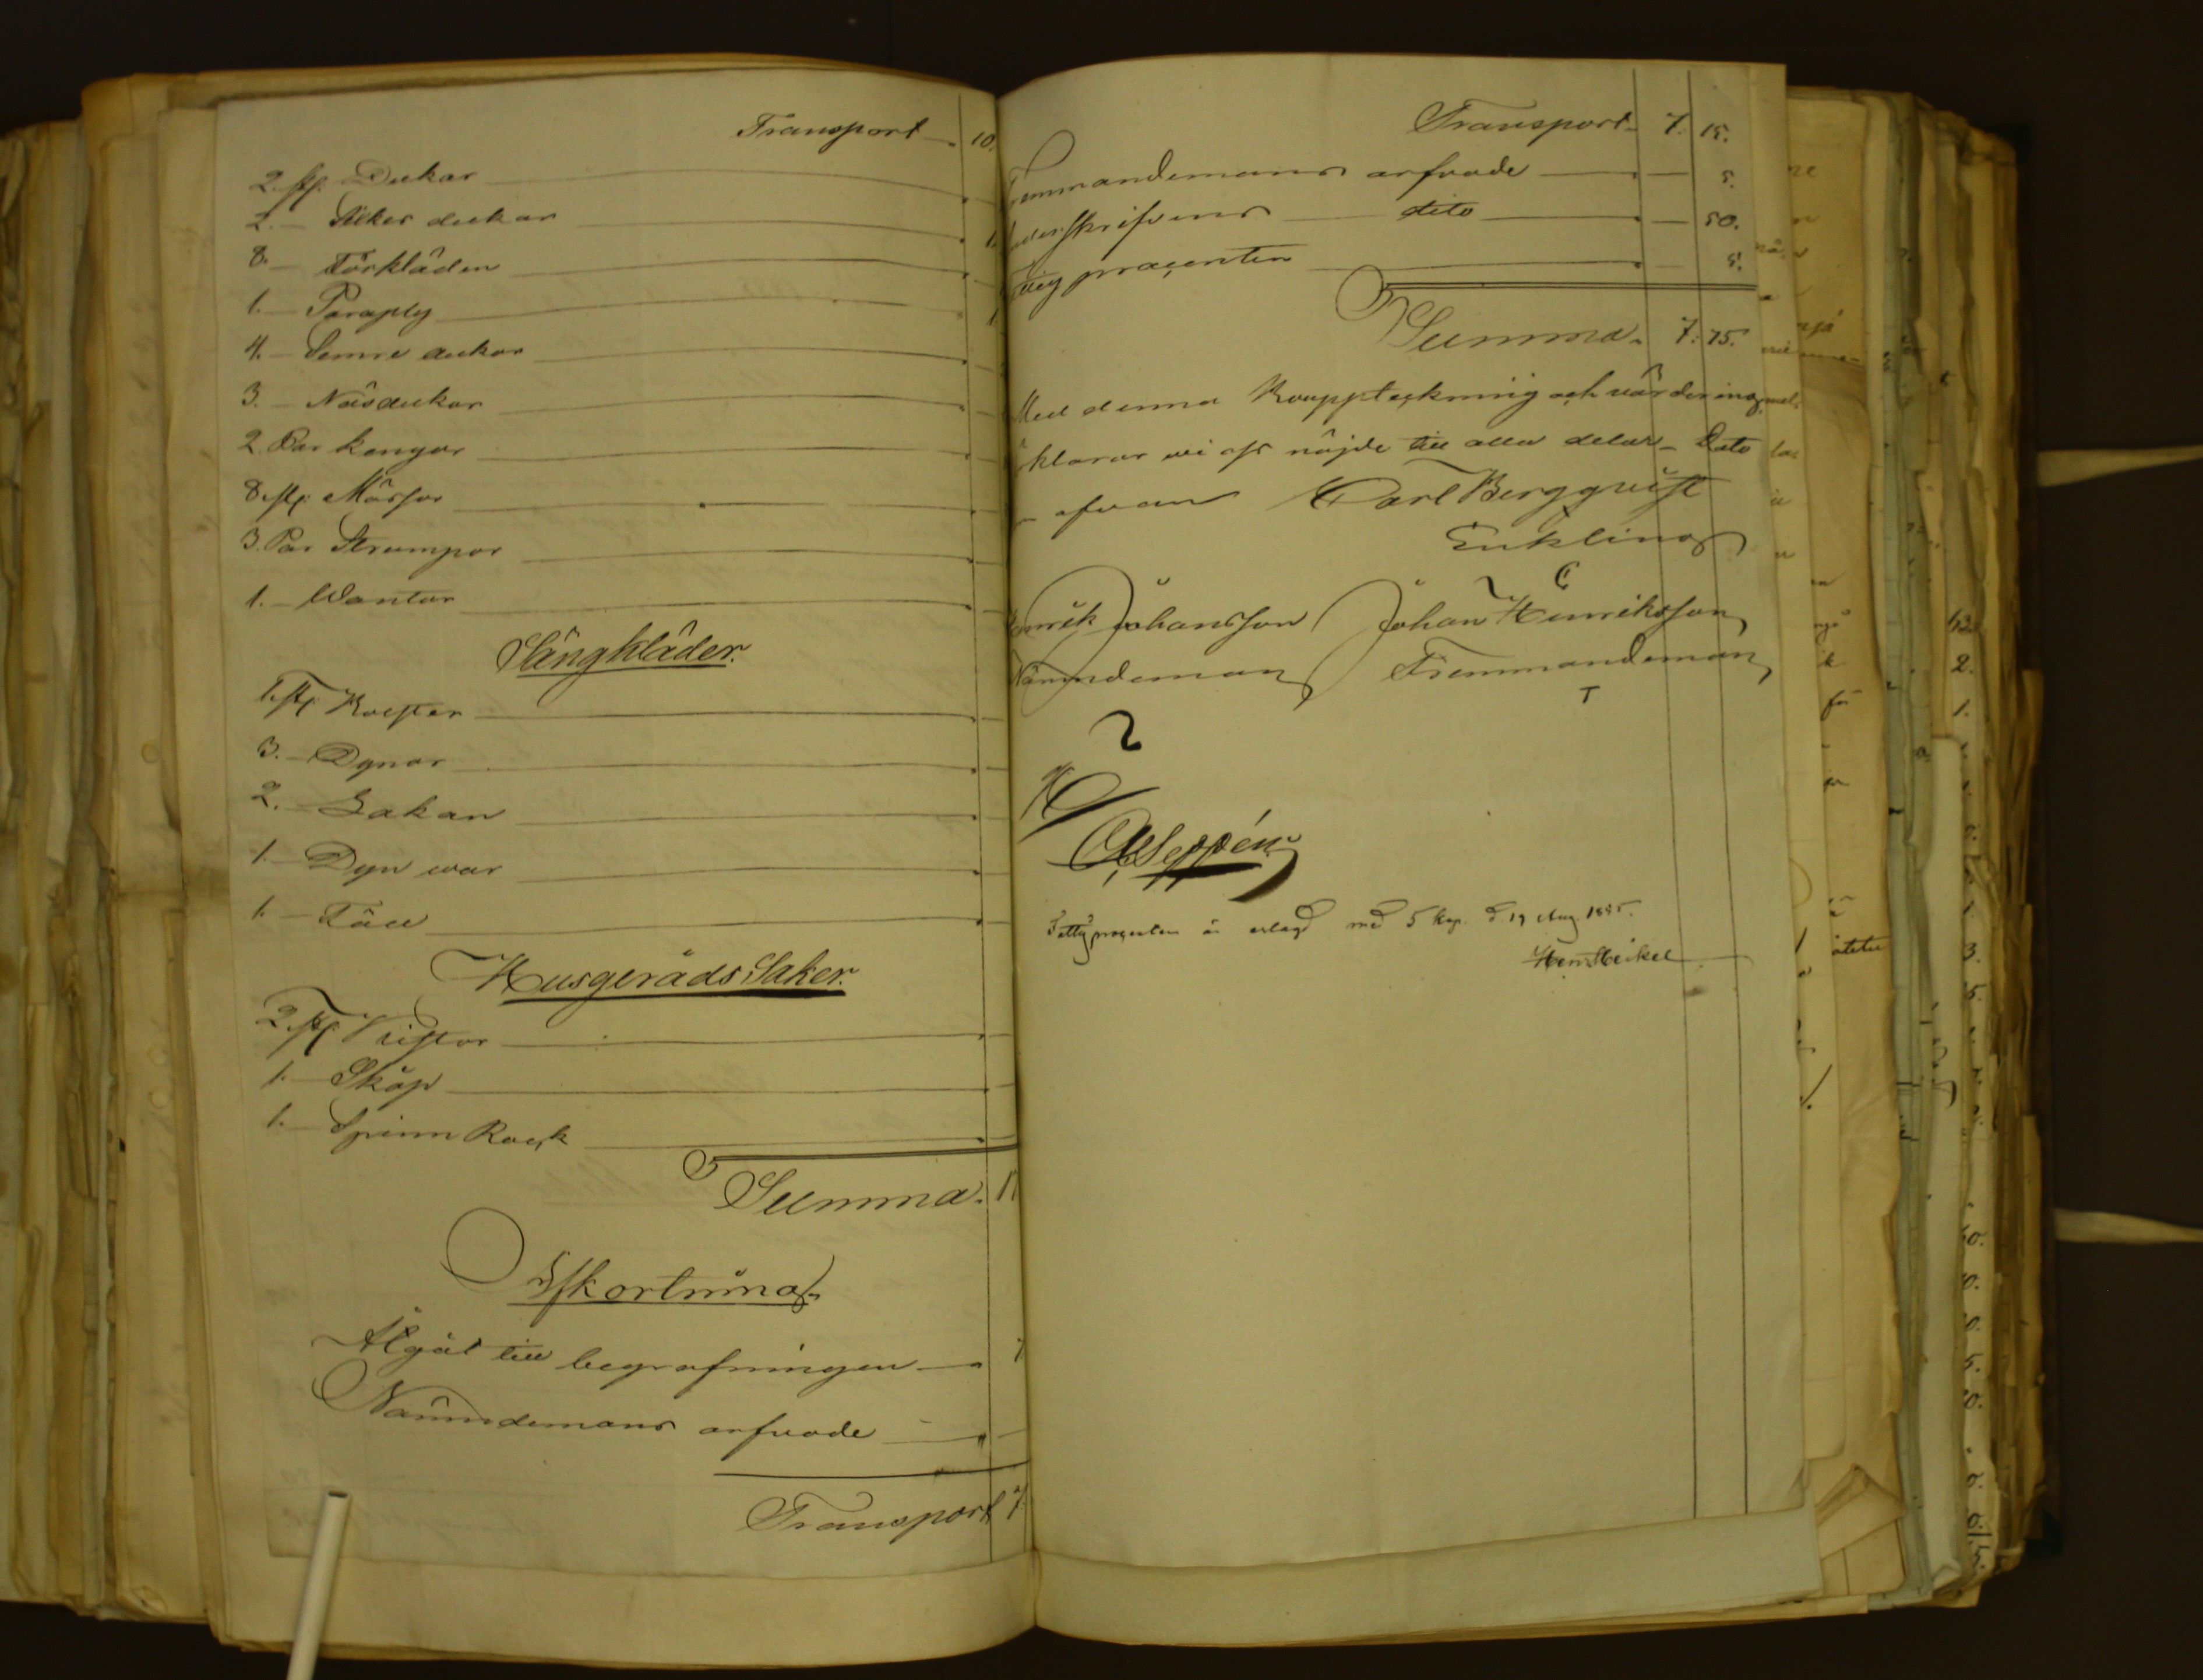 Transport 10.
2. st. Dukar
2. Silkes dukar
8. Förkläden
1. Paraply
4. Semre dukar
3. Näsdukar
2. Par kängor
8. st. Mössor
3. Par Strumpor
1. Wantar
Sängkläder.
1. st. Bolster
3. Dynor
2. Lakan
1. Dyn war
1. Fäll
Husgeråds Saker.
2. st. Kistor
1. Skåp
1. Spinn Rock
Summa. 11
Afkortning
Afgåt till begrafningen 7
Nämndemans arfvode
Transport 7
Transport 7. 15.
Fremmandemans arfvode 5.
underskrifvens dito 50.
fattig procenten 5.
Summa. 7. 75.
Med denna Bouppteckning och värdering
klarar wi oss nöjde till alla delar Dato
ofvan Carl Bergqvist
Enkling
Henrik Johansson Johan Henriksson
Nämndeman Fremmandeman
Seppén
Fattigprocenten är erlagd med 5 kop. d. 19 Aug. 1885.
Hein. Heikel